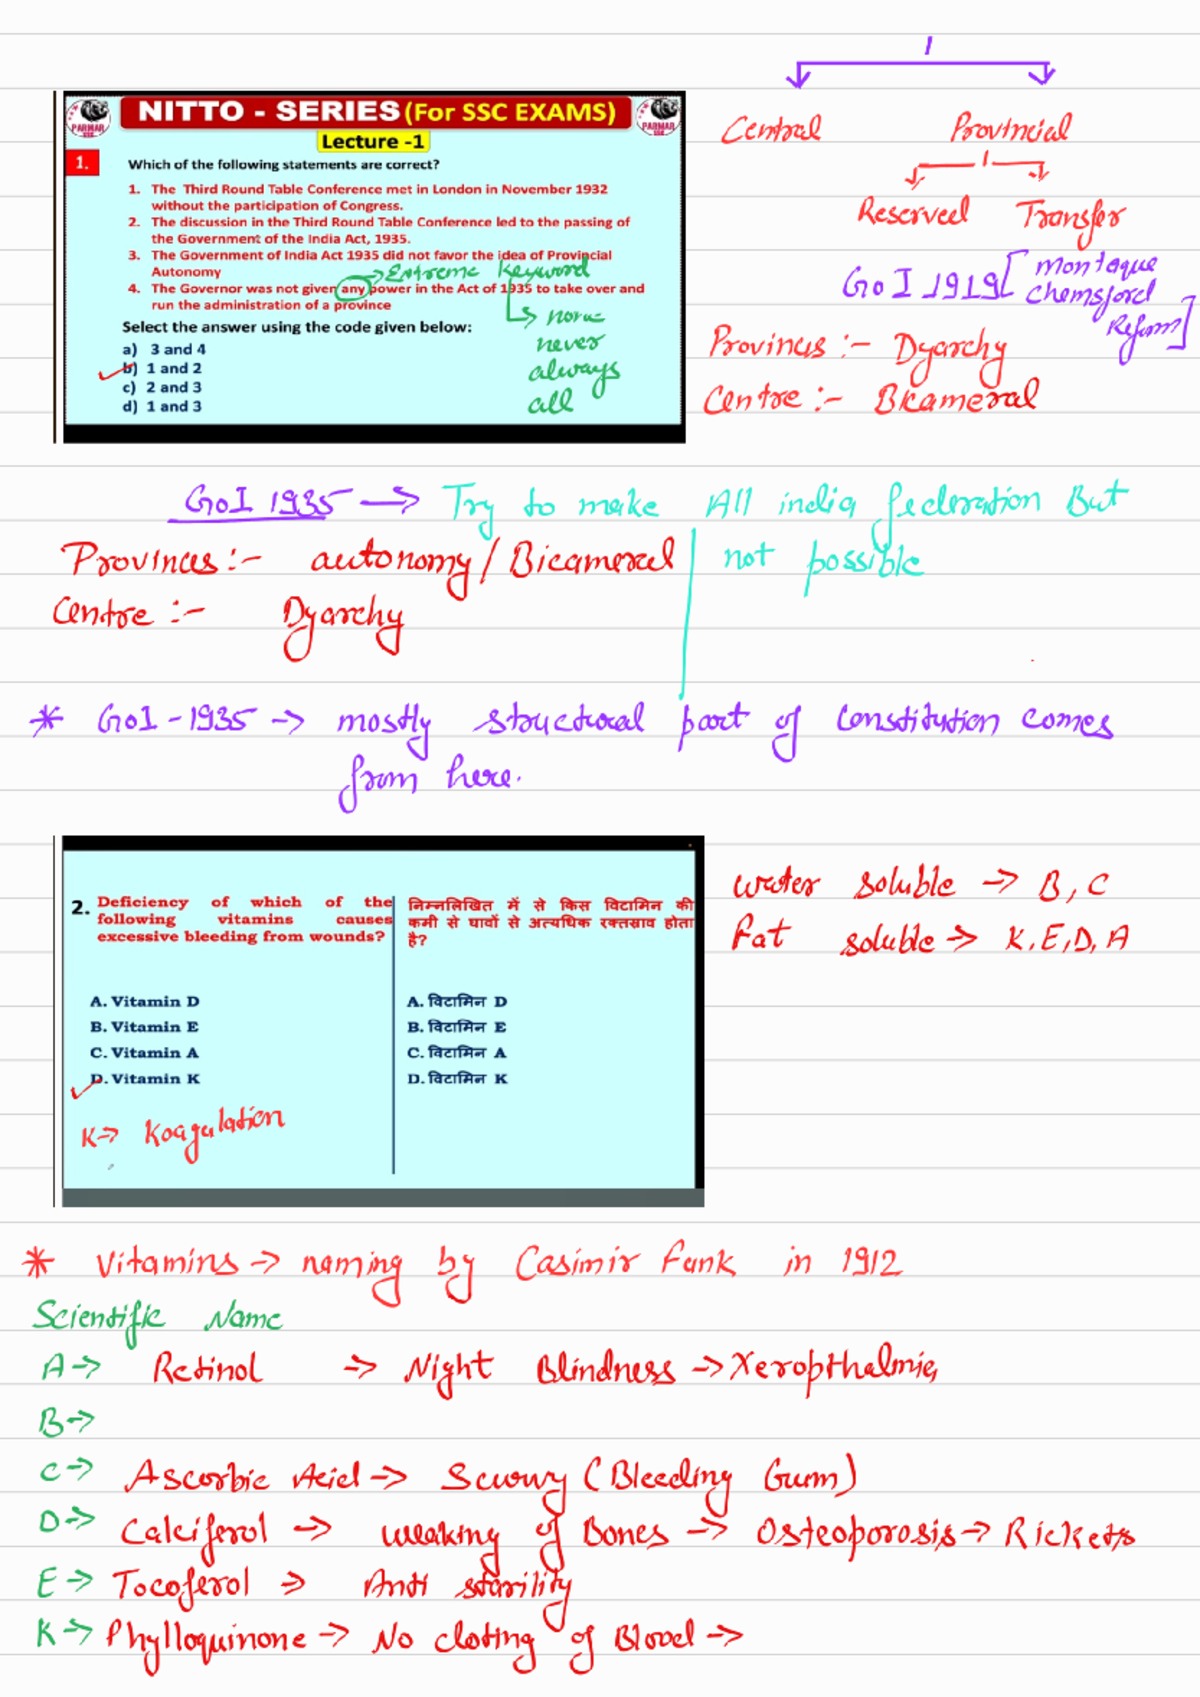 Central Provincial
Reserved Transfer
GoI 1919 [Montague
Chemsford
Reform]
Provinces :- Dyarchy
Centre :- Bicameral
PARMAR SSC
NITTO - SERIES (For SSC EXAMS)
PARMAR SSC
Lecture -1
1. Which of the following statements are correct?
1. The Third Round Table Conference met in London in November 1932
without the participation of Congress.
2. The discussion in the Third Round Table Conference led to the passing of
the Government of the India Act, 1935.
3. The Government of India Act 1935 did not favor the idea of Provincial
Autonomy
→ Extreme Keyword
4. The Governor was not given any power in the Act of 1935 to take over and
run the administration of a province
Select the answer using the code given below:
a) 3 and 4
b) 1 and 2
c) 2 and 3
d) 1 and 3
↳ none
never
always
all
GoI 1935 → Try to make All india federation But
not possible
Provinces :- autonomy / Bicameral
Centre :- Dyarchy
* GoI - 1935 → mostly structural part of Constitution comes
from here.
2. Deficiency of which of the
following vitamins causes
excessive bleeding from wounds?
A. Vitamin D
B. Vitamin E
C. Vitamin A
D. Vitamin K
K→ Koagulation
निम्नलिखित में से किस विटामिन की
कमी से घावों से अत्यधिक रक्तस्राव होता
है?
A. विटामिन D
B. विटामिन E
C. विटामिन A
D. विटामिन K
water soluble → B, C
Fat soluble → K, E, D, A
* Vitamins → naming by Casimir Funk in 1912
Scientific Name
A → Retinol → Night Blindness → Xeropthalmia
B →
C → Ascorbic Acid → Scurvy (Bleeding Gum)
D → Calciferol → weaking of Bones → Osteoporosis → Rickets
E → Tocoferol → Anti starility
K → Phylloquinone → No cloting of Blood →